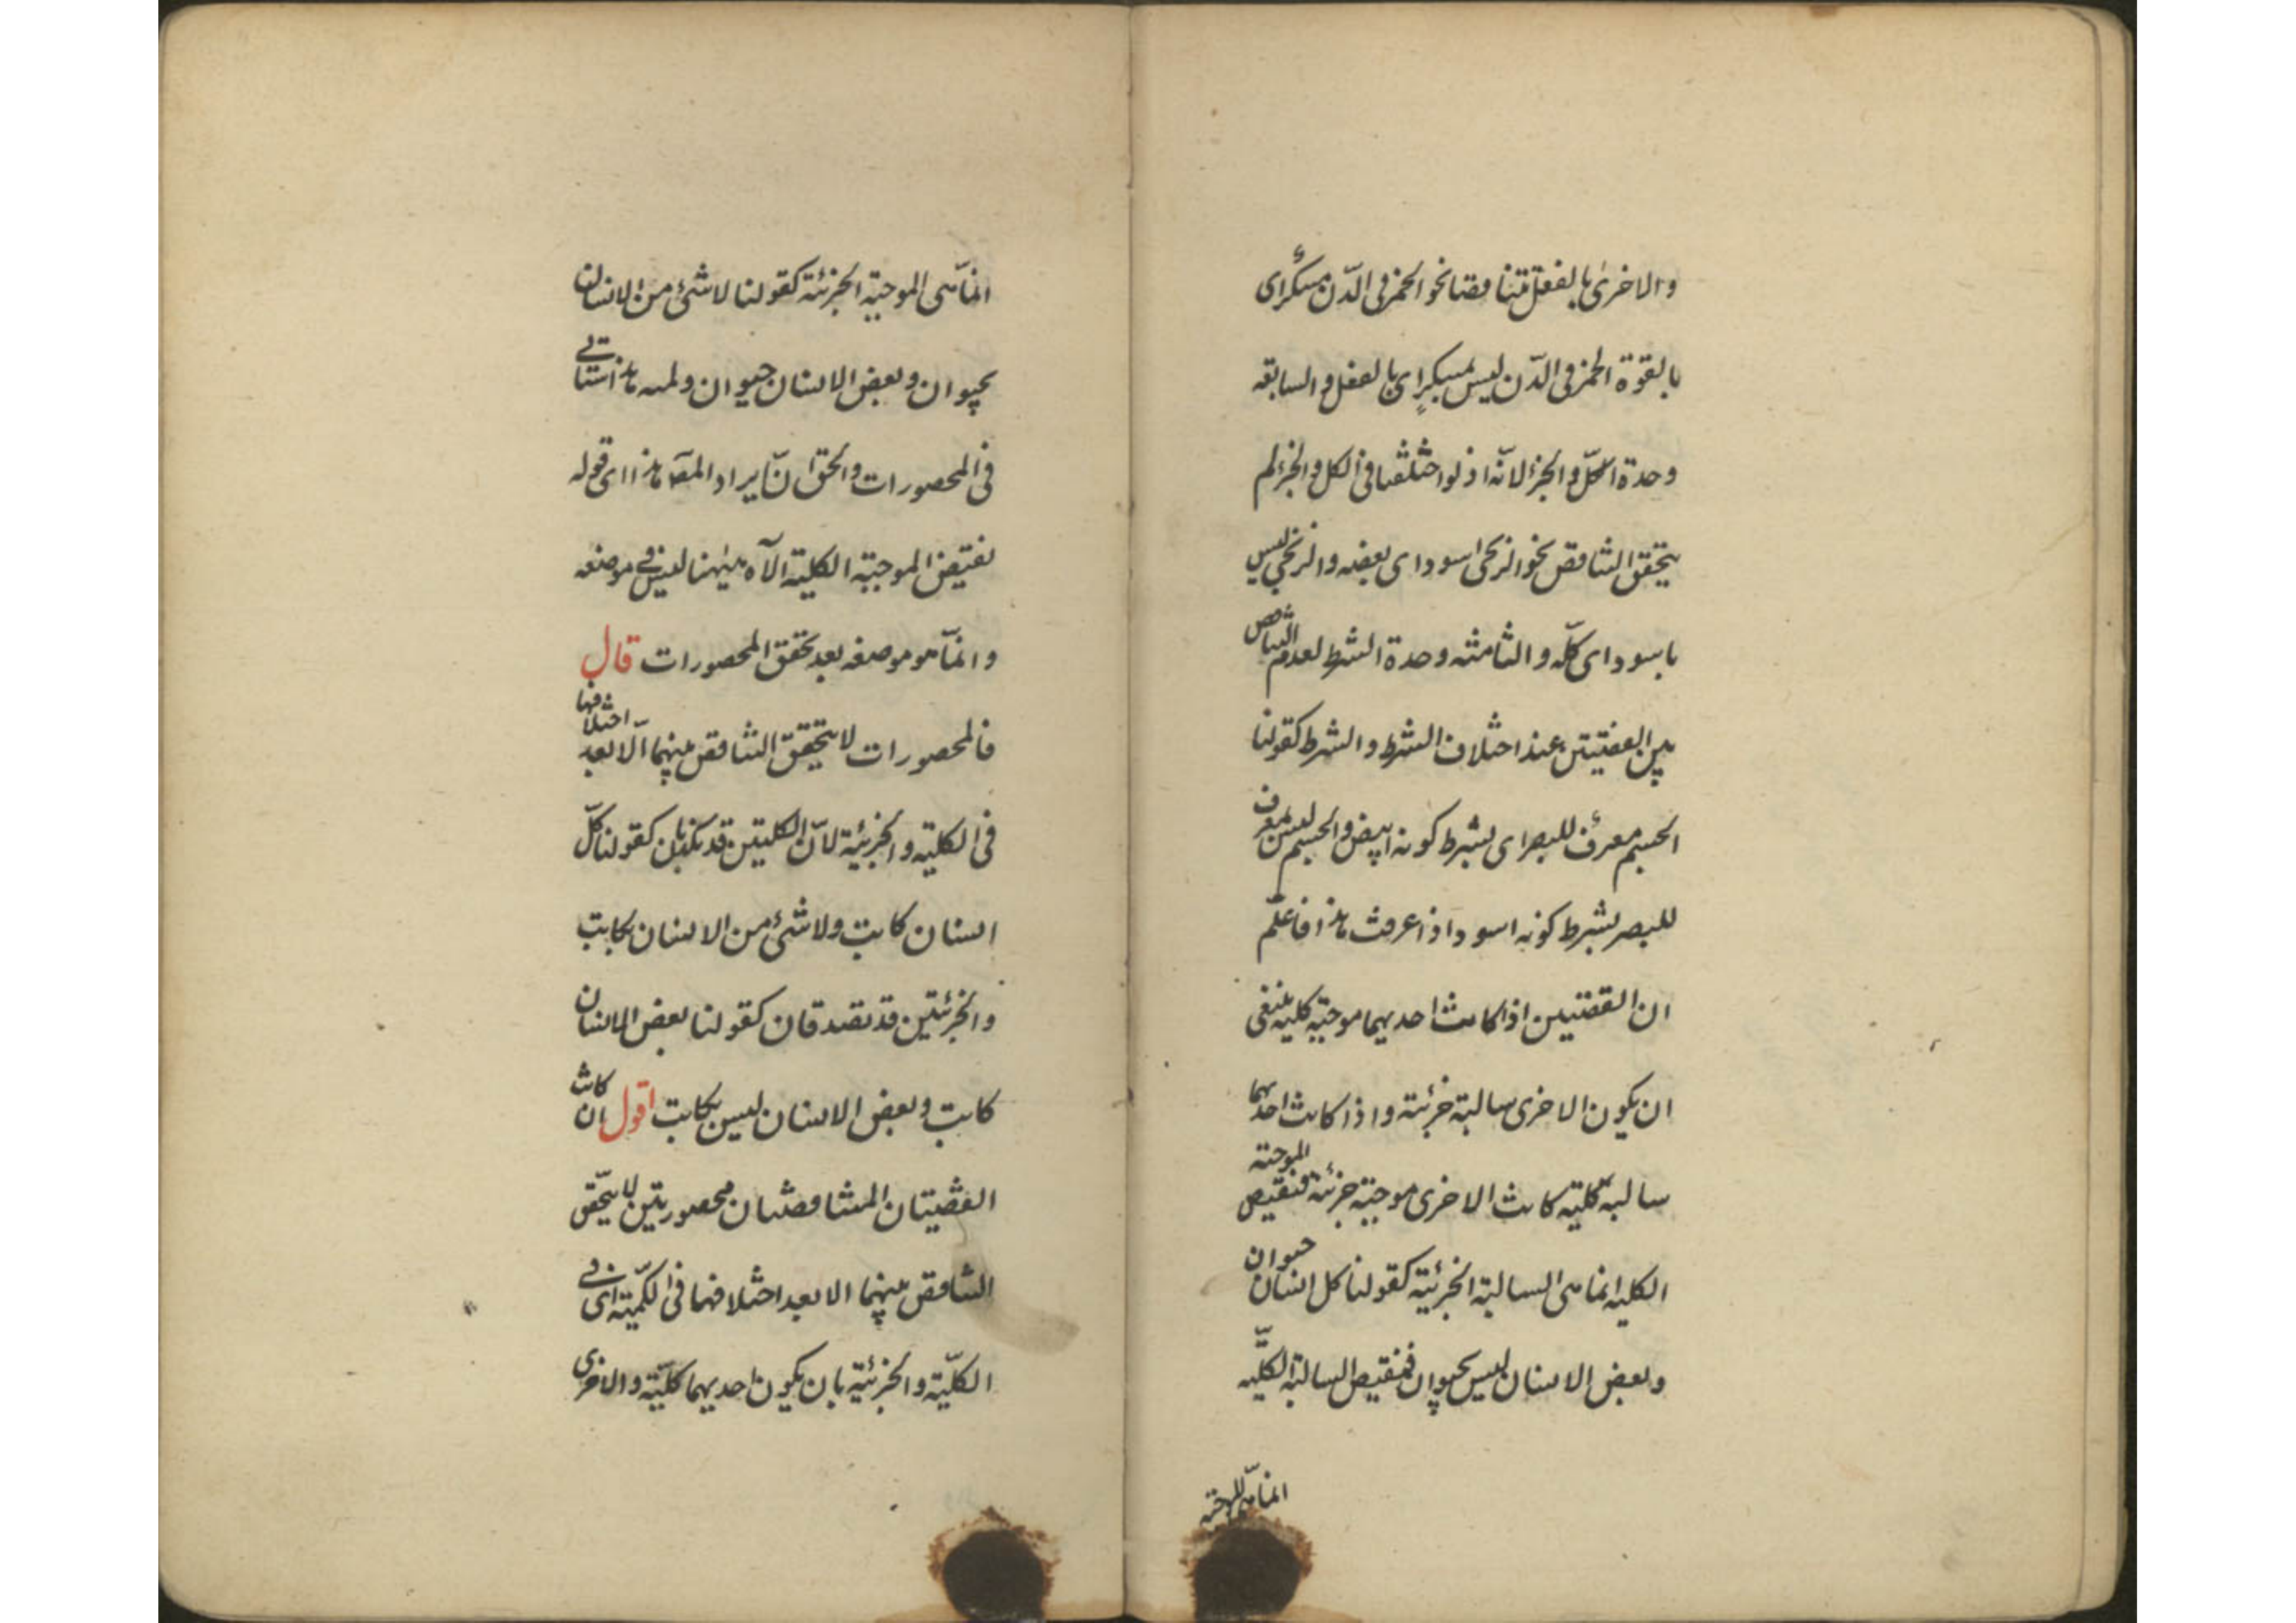 والاخرى بالفعل تتناقضا نحو الخمر فى الدّن مسكرٌ اى
بالقوة الخمر فى الدّن ليس بمسكرٍ اى بالفعل والسابعة
وحدة الكلّ والجزء لانّه اذ لو اختلفتا فى الكل والجزء لم
يتحقق التناقض نحو الزنجى اسود اى بعضه والزنجى ليس
باسود اى كلّه والثامنة وحدة الشرط لعدم التناقض
بين القضيتين عند اختلاف الشرط والشرط كقولنا
الجسم مفرّق للبصر اى بشرط كونه ابيض والجسم ليس بمفرق
للبصر بشرط كونه اسود اذا عرفت هذا فاعلم
ان القضيتين اذا كانت احديهما موجبة كلية ينبغى
ان يكون الاخرى سالبة جزئية واذا كانت احديهما
سالبة كلية كانت الاخرى موجبة جزئية فنقيض الموجبة
الكلية انما هى السالبة الجزئية كقولنا كل انسان حيوان
وبعض الانسان ليس بحيوان فنقيض السالبة الكليّة
انما هى الموجبة
انّما هى الموجبة الجزئية كقولنا لا شئ من الانسان
بحيوان وبعض الانسان حيوان ولمه هذا ستاتى
فى المحصورات والحق انّ ايراد المصّ هذا اى قوله
نقيض الموجبة الكلية الآه هيهنا ليس فى موضعه
وانمّا هو موضعه بعد تحقق المحصورات قال
فالمحصورات لا يتحقق التناقض بينهما الّا بعد اختلافهما
فى الكلية والجزئية لانّ الكليتين قد تكذبان كقولنا كلّ
انسان كاتب ولا شئ من الانسان بكاتب
والجزئيتين قد تصدقان كقولنا بعض الانسان
كاتب وبعض الانسان ليس بكاتب اقول ان كانت
القضيتان المتناقضتان محصوريتين لا يتحقق
التناقض بينهما الا بعد اختلافهما فى الكمّية اى فى
الكلّية والجزئية بان يكون احديهما كلّية والاخرى